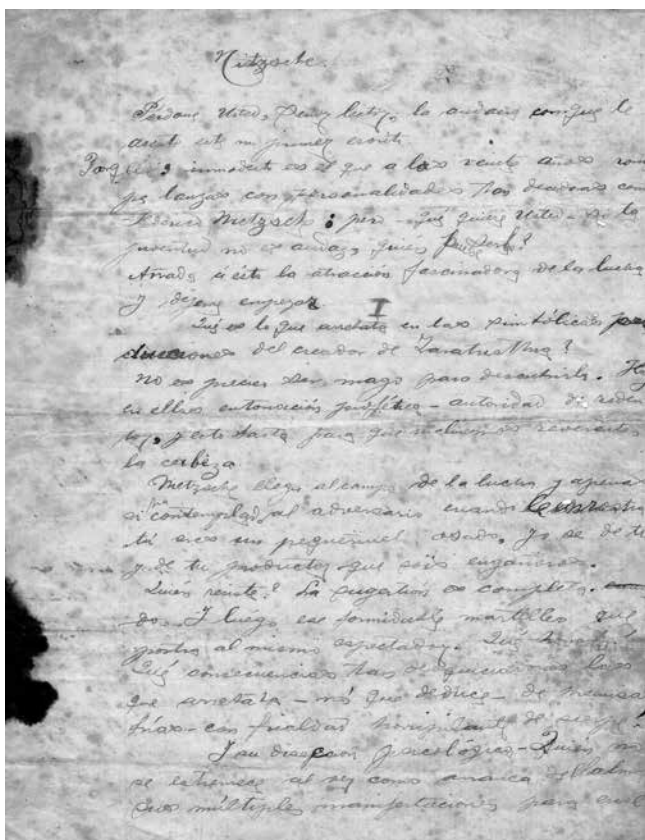 Nitzsche.
Perdone Usted, Señor lector, la audacia con que le
asesto este mi primer escrito
Porque inmodesto es el que a los veinte años rom
pe lanzas con personalidades tan como
Federico Nietzsche; pero - qué quiere Usted - si la
juventud no es audaz, quien puede serlo?
Añada a esto la atracción fascinadora de la lucha
y dejeme empezar
I
Qué es lo que arrebata en las simbólicas pro
ducciones del creador de Zarathustra?
No es preciso ser mago para descubrirlo. Hay
en ellas entonación profética - autoridad de reden
tor, y esto basta para que inclinemos reverentes
la cabeza
Nietzsche llega al campo de la lucha y apenas
si ha contemplado al adversario cuando
tú eres un pequeñuel osado. Yo se de ti
y de tu productos que sois engañosos.
Quién resiste? La sugestion es completa.
do. Y luego ese formidable martilleo que
postra al mismo espectador. Qué
Qué consecuencias tan las
que arrebata - más que deduce - de premisas
frías - con frialdad horripilante de sierpe!
Y su diseccion psicológica - Quién no
se estremece al ver como arranca del alma
sus múltiples manifestaciones para